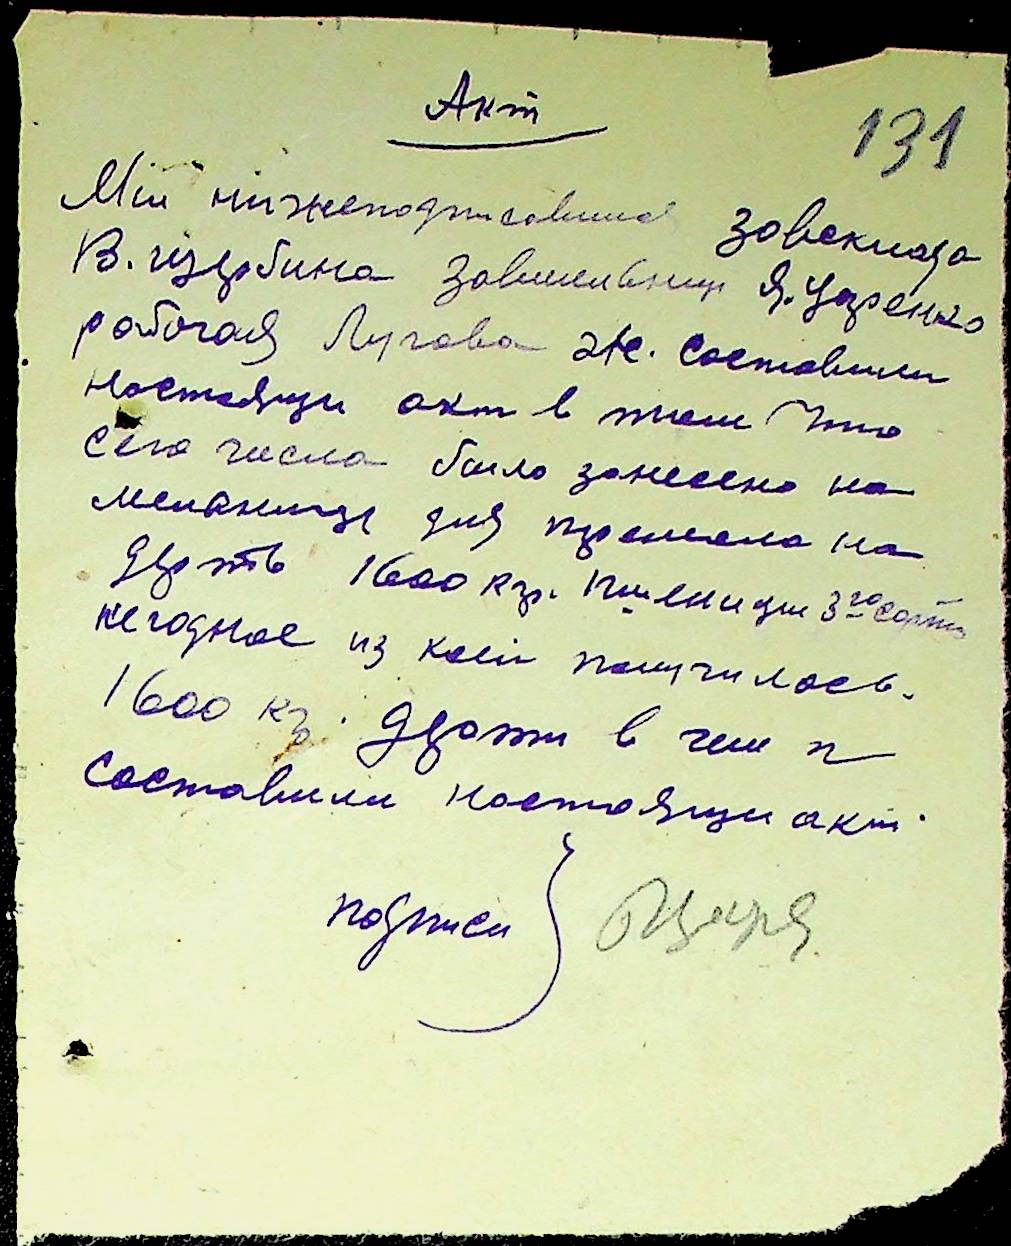 Акт
131
Мы нижеподписавшиеся завсклада
В. Щербина завмельниц Я. Царенко
рабочая Лугова Ж. составили
настоящи акт в том что
сего числа было занесено на
мельницу для премела на
дерть 1600 кгр. пшеницы 3го сорта
негодное из коей получилось.
1600 кг. Дерти в чем и
составили настоящи акт.
подписи